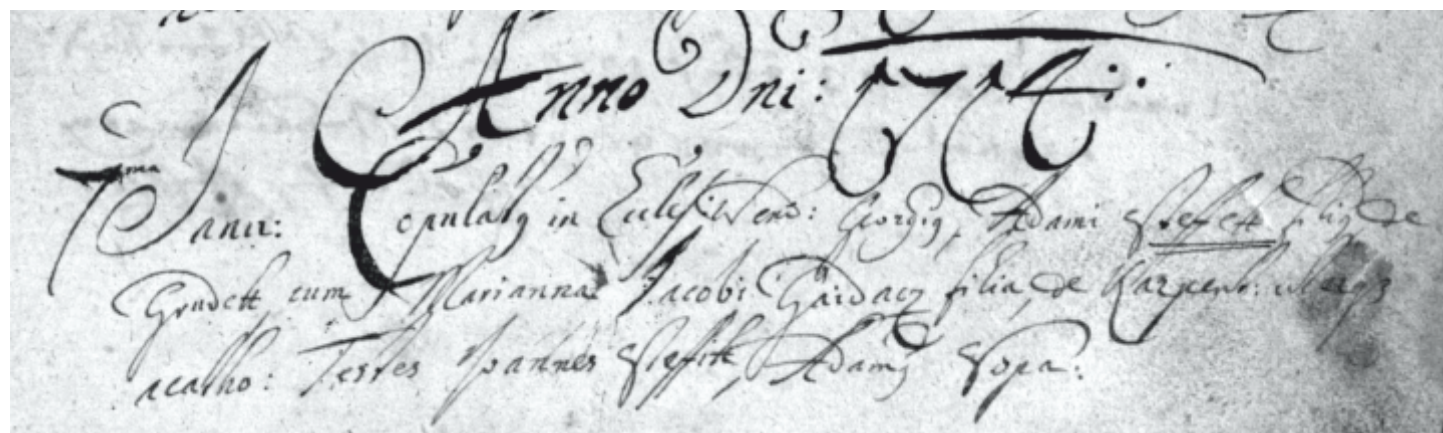 Anno Dni: 1714:
7ma Janu: Copulatq in Eccles: Wend: Gorgiq Adami Stefek filiq de
Grudek cum Marianna Jacobi Gaidacz filia de Karpent:
Testes Joannes Steffek Adamq Sopa: